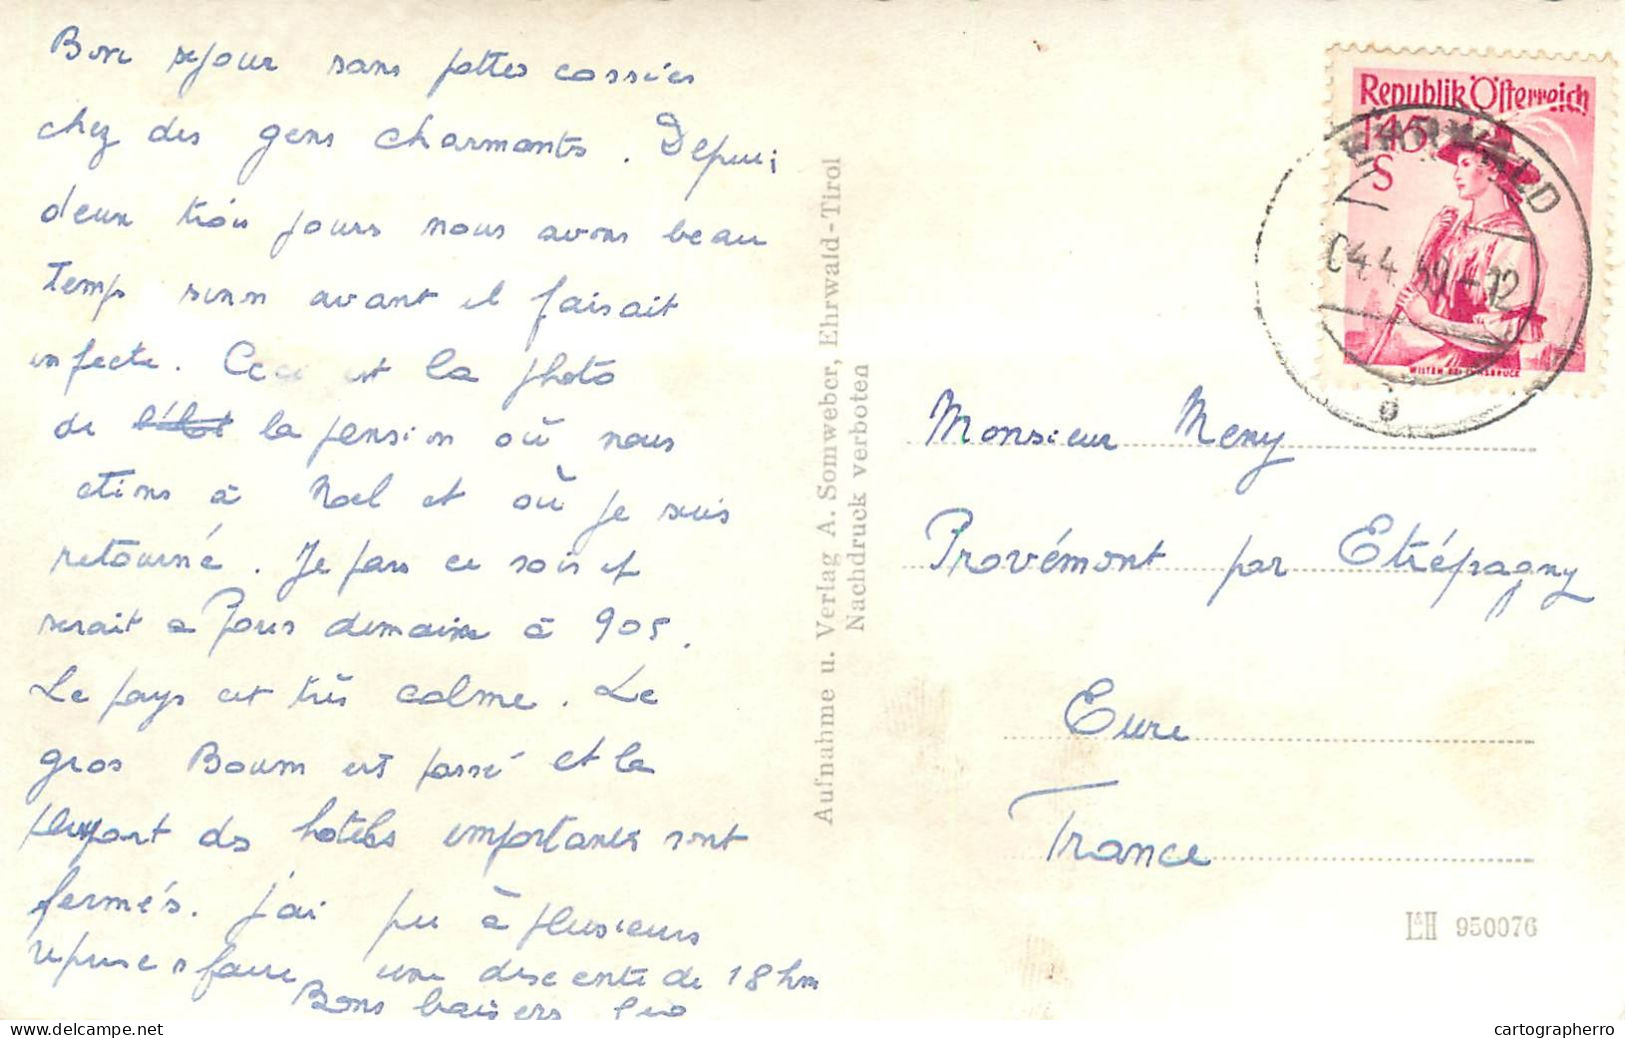 Bon séjour sans pattes cassées
chez des gens charmants. Depuis
deux trois jours nous avons beau
temps sinon avant il faisait
infecte. Ceci est la photo
de la pension où nous
étions à Noel et où je suis
retourné. Je pars ce soir et
serait a Paris demain à 905.
Le pays est très calme. Le
gros Boum est passé et la
plupart des hotels importants sont
fermés. j'ai pu à plusieurs
reprises faire une descente de 18 km
Bons baisers
Aufnahme u. Verlag A. Somweber, Ehrwald-Tirol
Nachdruck verboten
Republik Österreich
1 45
S
WILTEN BEI INNSBRUCK
EHRWALD
04.4.59.-12
a
Monsieur Meny
Provémont par Etrépagny
Eure
France
L&H 950076
delcampe.net
cartographerro